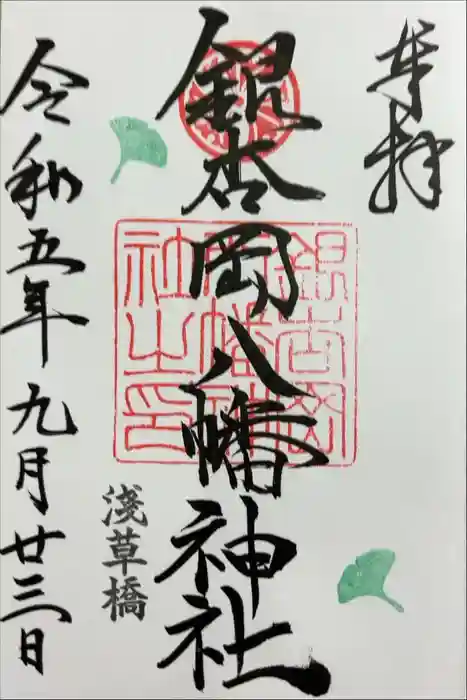 奉拝
銀杏岡八幡神社
銀杏岡八幡神社之印
淺草橋
令和五年九月廿三日